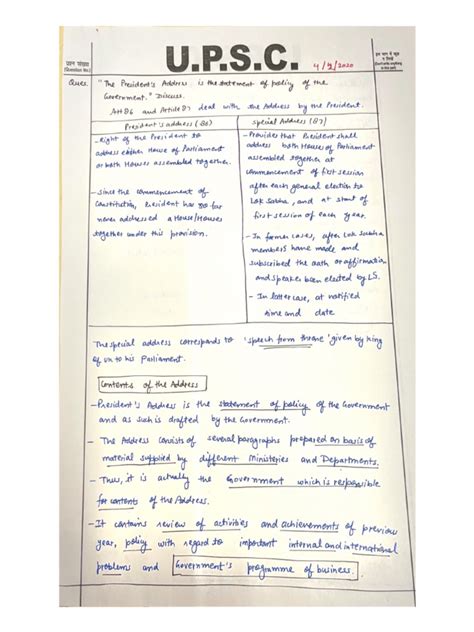 प्रश्न संख्या
(Question No.)
U.P.S.C.
4/9/2020
Ques. "The President's Address is the statement of policy of the
Government." Discuss.
Art 86 and Article 87 deal with the Address by the President.
President's address (86)
- Right of the President to
address either House of Parliament
or both Houses assembled together.
- Since the commencement of
Constitution, President has so far
never addressed a House/Houses
together under this provision.
Special Address (87)
- Provides that President shall
address both Houses of Parliament
assembled together at
commencement of first session
after each general election to
Lok Sabha, and at start of
first session of each year.
- In former cases, after Lok Sabha
members have made and
subscribed the oath or affirmation
and speaker been elected by LS.
- In latter case, at notified
time and date
The special address corresponds to 'speech from throne' given by King
of UK to his Parliament.
Contents of the Address
- President's Address is the statement of policy of the Government
and as such is drafted by the Government.
- The Address consists of several paragraphs prepared on basis of
material supplied by different Ministeries and Departments.
- Thus, it is actually the Government which is responsible
for contents of the Address.
- It contains review of activities and achievements of previous
year, policy with regard to important internal and international
problems and Government's programme of business.